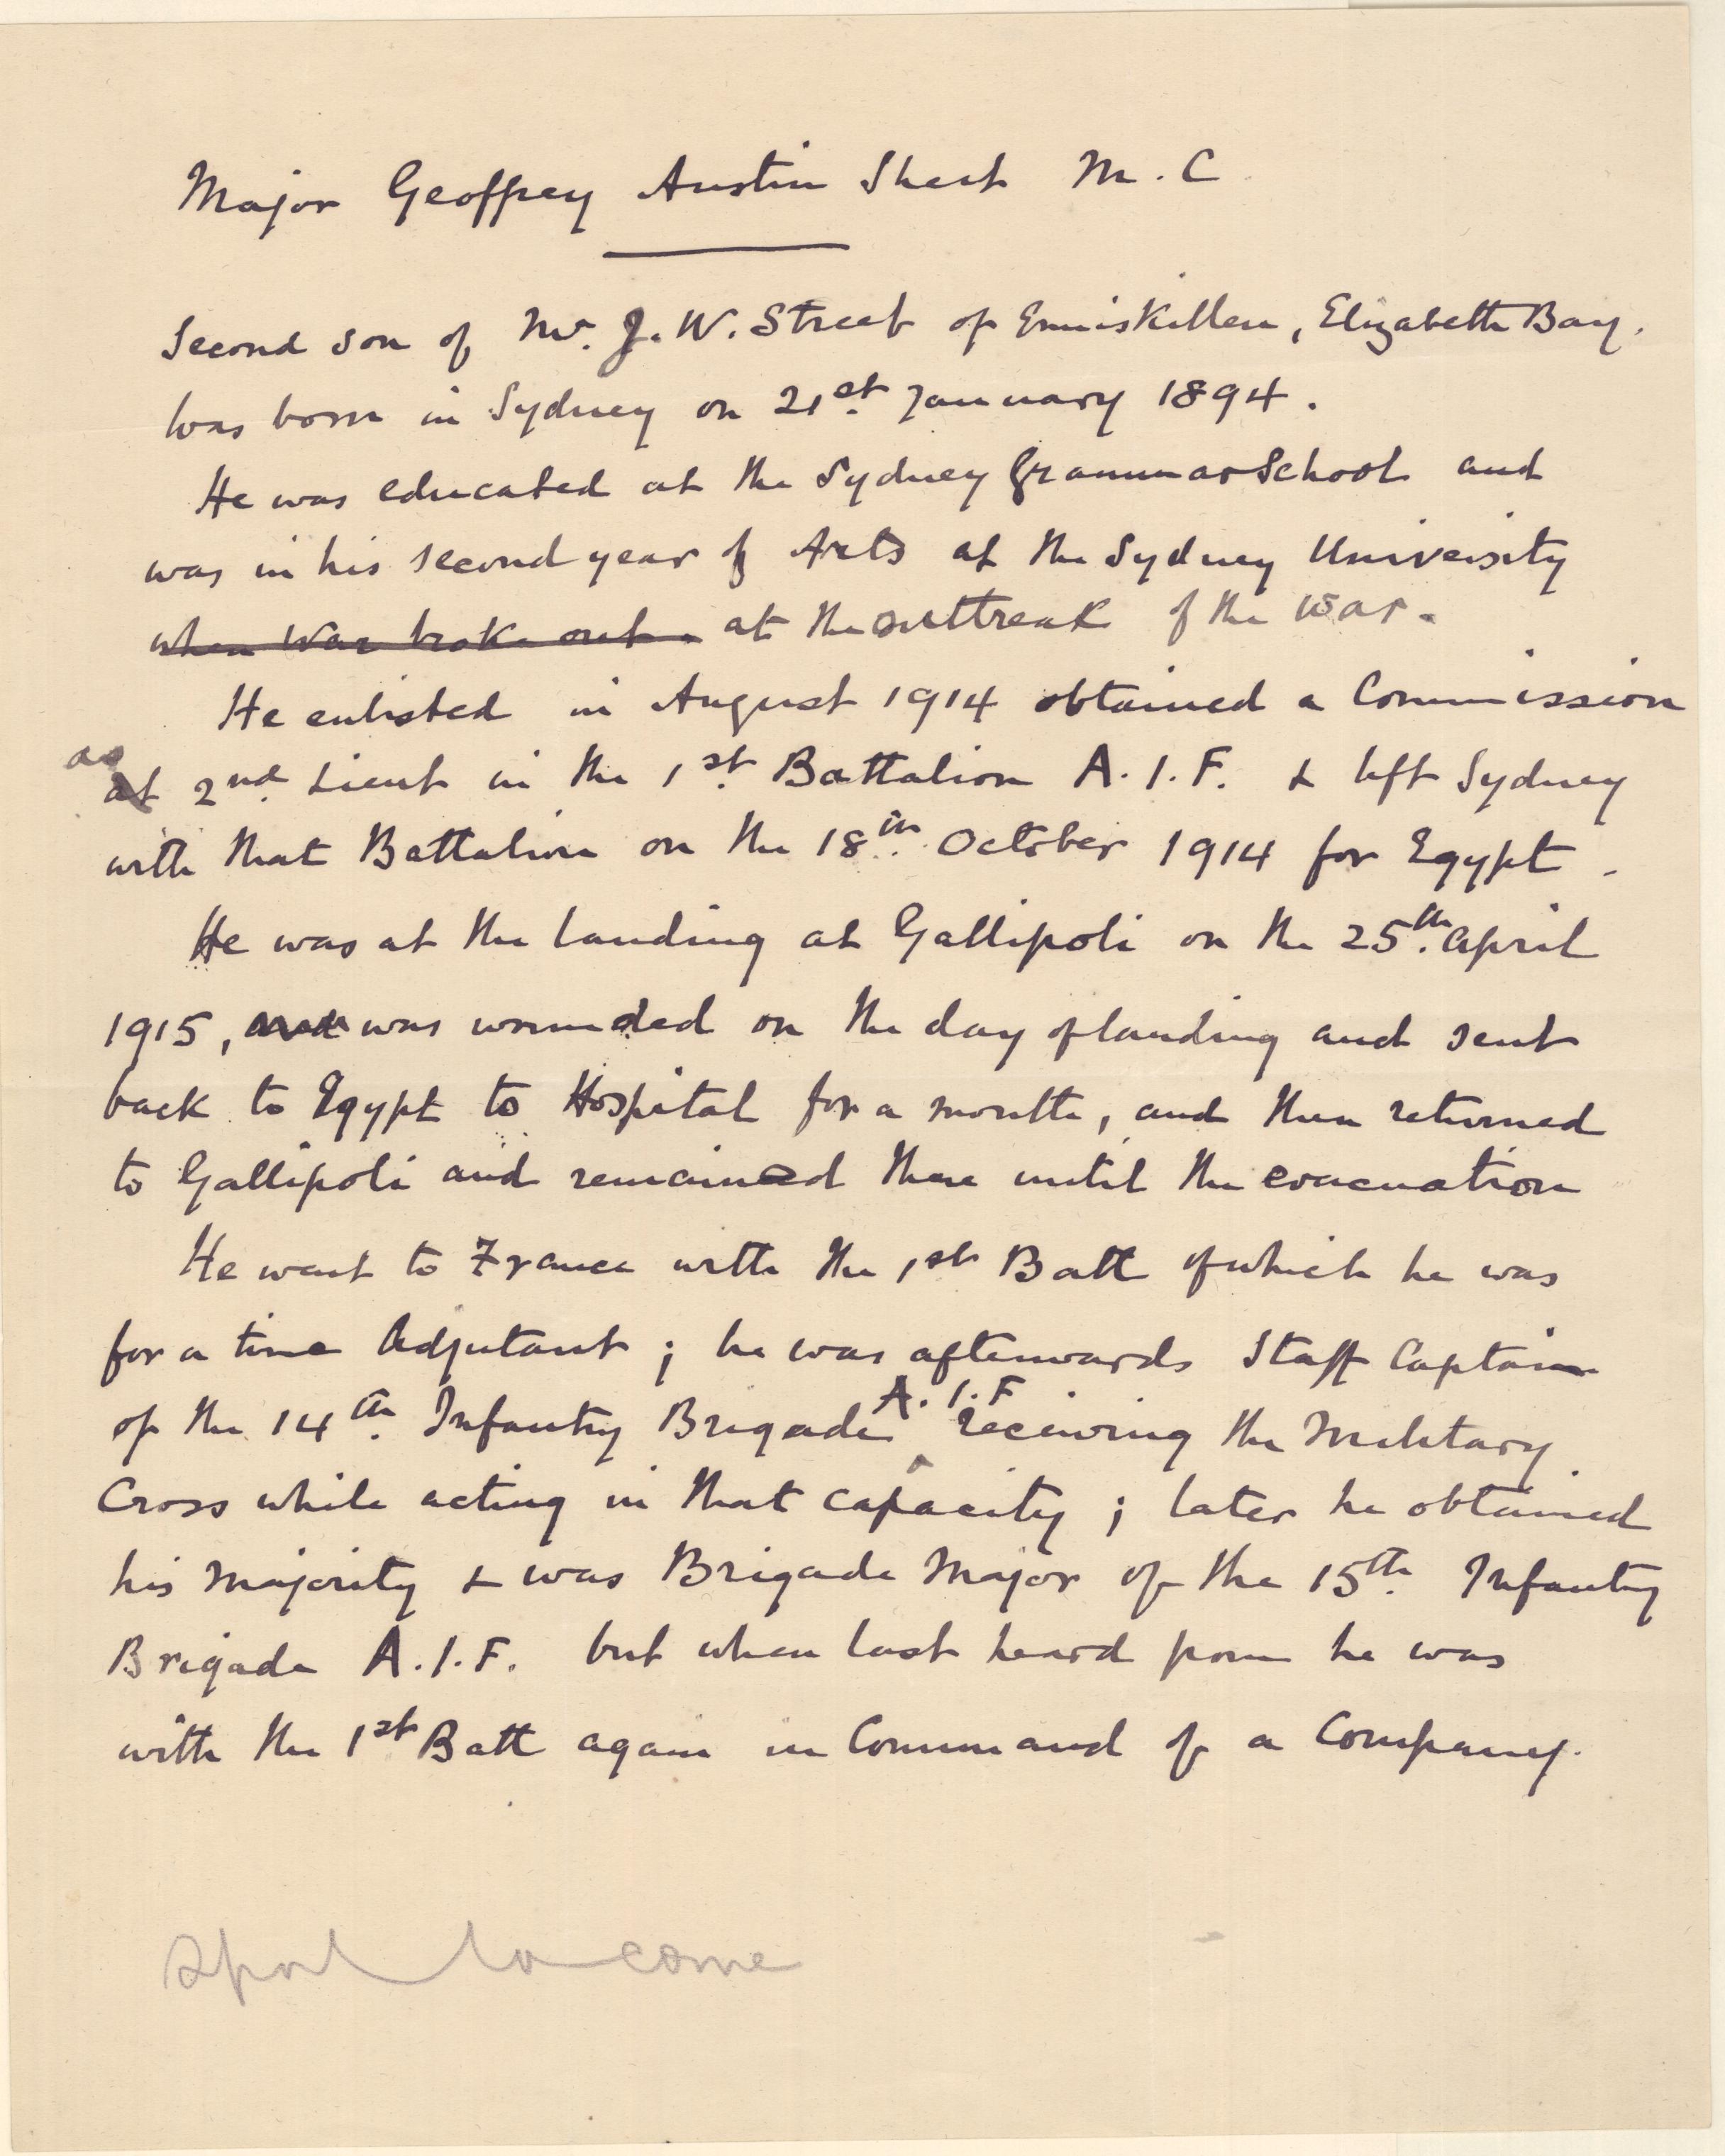 Major Geoffrey Austin Street M.C
Second son of Mr. J.W. Street of Enniskillen, Elizabeth Bay.
was born in Sydney on 21st January 1894.
He was educated at the Sydney Grammar School and
was in his second year of Arts at the Sydney University
when War broke out. at the outbreak of the War.
He enlisted in August 1914 obtained a Commission
as
at 2nd Lieut in the 1st Battalion A.I.F. & left Sydney
with that Battalion on the 18th October 1914 for Egypt.
He was at the landing at Gallipoli on the 25th April
1915, and was wounded on the day of landing and sent
back to Egypt to Hospital for a month, and then returned
to Gallipoli and remained there until the evacuation
He went to France with the 1st Batt of which he was
for a time Adjutant; he was afterwards Staff Captain
of the 14th Infantry Brigade A.I.F receiving the Military
Cross while acting in that capacity; later he obtained
his Majority & was Brigade Major of the 15th Infantry
Brigade A.I.F. but when last heard from he was
with the 1st Batt again in Command of a Company.
Sport to come